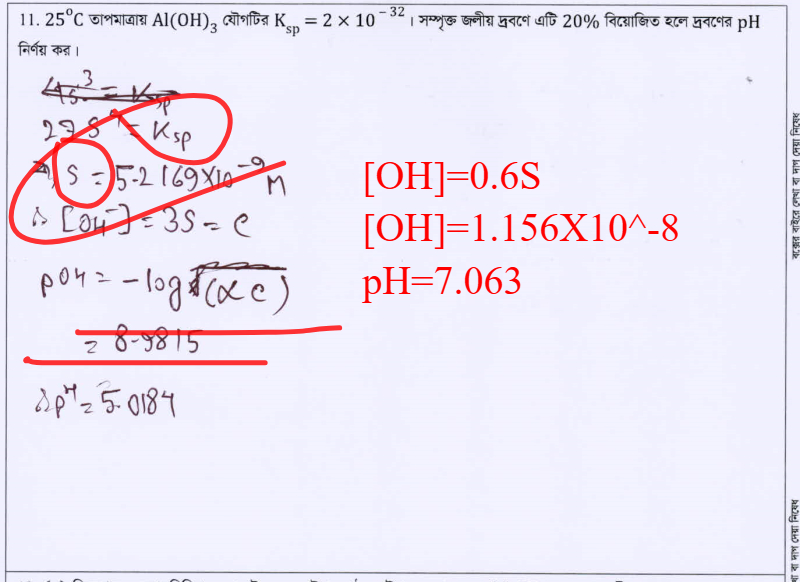 11. 25°C তাপমাত্রায় Al(OH)₃ যৌগটির Kₛₚ = 2 × 10⁻³²। সম্পৃক্ত জলীয় দ্রবণে এটি 20% বিয়োজিত হলে দ্রবণের pH
নির্ণয় কর।
4s³ = Ksp
27 S⁴ = Ksp
S = 5.2169×10⁻⁹ M
[OH⁻] = 3S = C
[OH]=0.6S
[OH]=1.156X10^-8
pH=7.063
pOH = -log (αc)
= 8.9815
∴ pH = 5.0184
বক্সের বাইরে লেখা বা দাগ দেয়া নিষেধ
বা দাগ দেয়া নিষেধ